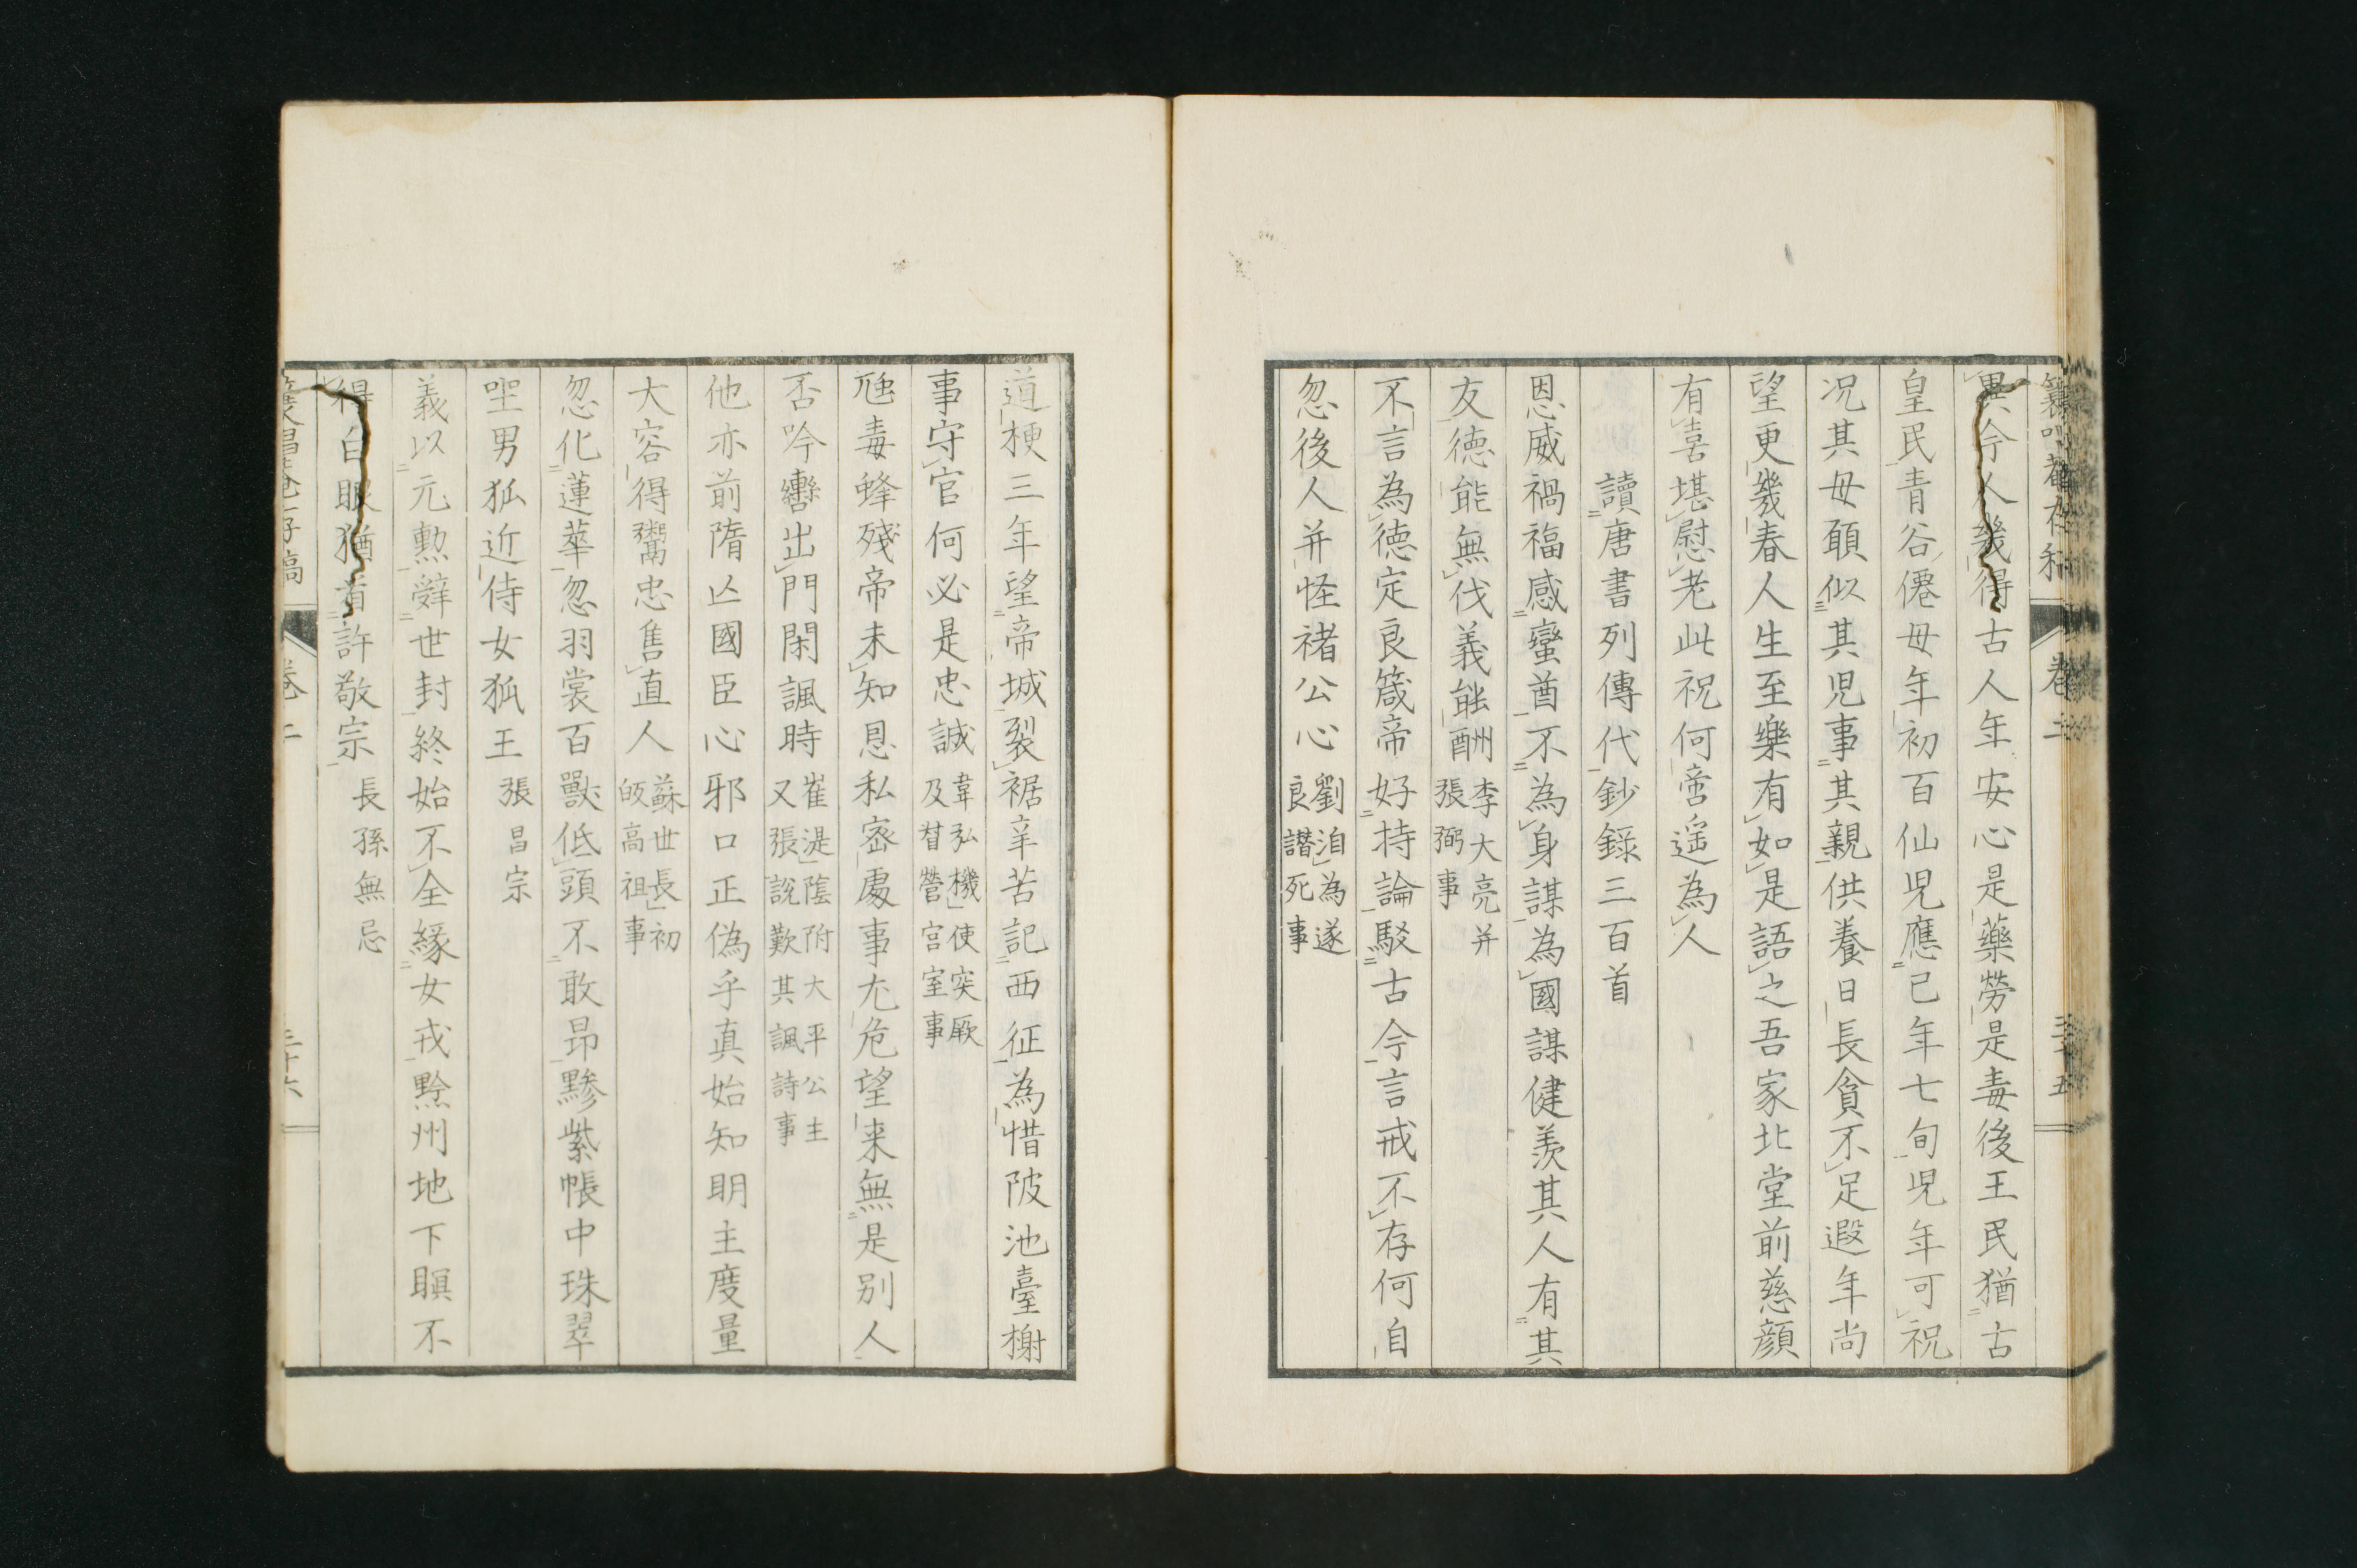 卷二
三十五
異今人幾得古人年安心是藥勞是毒後王民猶古
皇民青谷僊母年初百仙児應已年七旬児年可祝
况其母頤似其児事其親供養日長貧不足遐年尚
望更幾春人生至樂有如是語之吾家北堂前慈顔
有喜堪慰老此祝何啻遥為人
讀唐書列傳代鈔録三百首
恩威禍福感蠻酋不為身謀為國謀健羨其人有其
友徳能無伐義能酬
李大亮并
張弼事
不言為徳定良箴帝好持論駁古今言戒不存何自
忽後人并怪褚公心
劉洎為遂
良譖死事
道梗三年望帝城裂裾辛苦記西征為惜陂池臺榭
事守官何必是忠誠
韋弘機使突厥
及督營宮室事
虺毒蜂殘帝未知恩私密處事尤危望来無是别人
否吟轡出門閑諷時
崔湜蔭附大平公主
又張説歎其諷詩事
他亦前隋亾國臣心邪口正偽乎真始知明主度量
大容得鬻忠售直人
蘇世長初
皈高祖事
忽化蓮華忽羽裳百獸低頭不敢昂黲紫帳中珠翠
坐男狐近侍女狐王
張昌宗
義以元勲辭世封終始不全縁女戎黔州地下瞑不
得白眼猶首許敬宗
長孫無忌
卷二
三十六